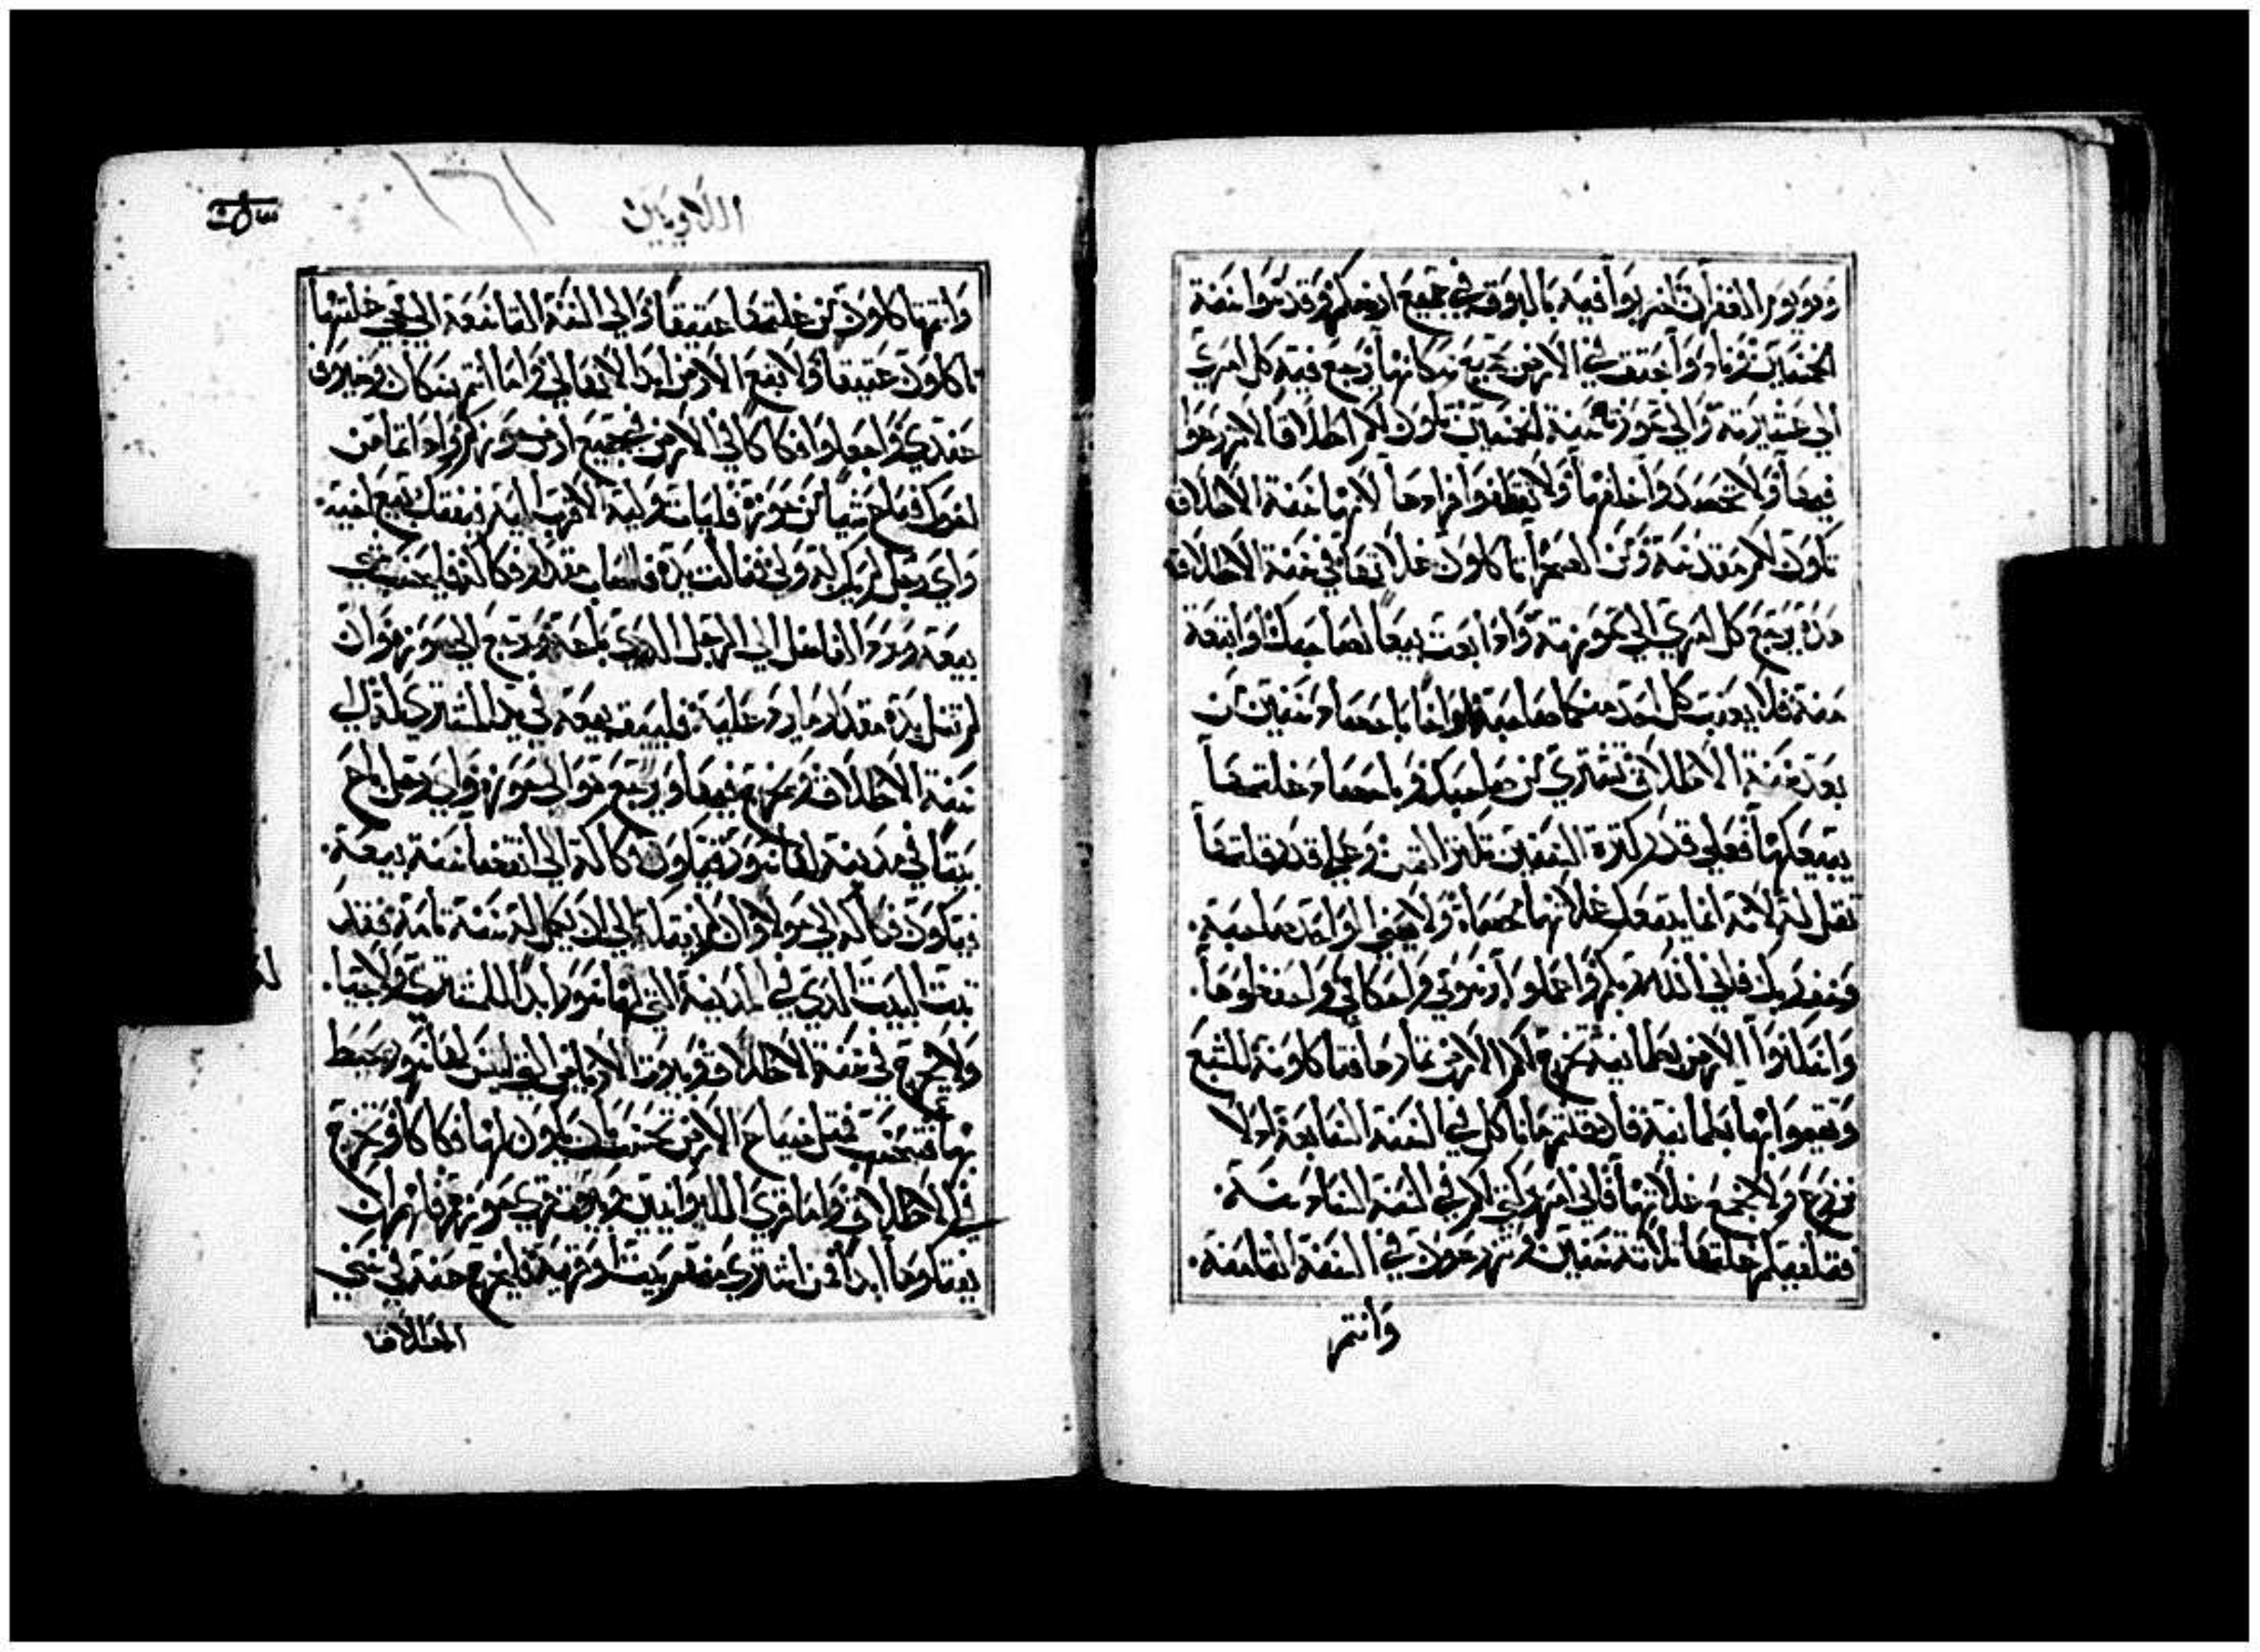 وهو يوم الغفران اضربوا فيه بالبوق في جميع ارضكم وقدسوا سنة
الخمسين ونادوا في الارض لجميع سكانها يرجع فيه كل امري
الي عشيرته والي حوزته سنة الخمسين تكون لكم اطلاقا لا تزرعوا
فيها ولا تحصدوا خلفها ولا تقطفوا افرادها لانها سنة الاطلاق
تكون لكم مقدسة ومن الصحرا تاكلون غلاتها في سنة الاطلاق
هذه يرجع كل امري الي حوزته واذا بعت بيعا لصاحبك او ابتعت
منه فلا يغبن كل احد منكما صاحبه باحصاء سنين من
بعد سنة الاطلاق تشتري من صاحبك وباحصاء غلتها
يبيعكها فعلي قدر كثرة السنين تكثر الثمن وعلي قدر قلتها
تقل له لانه انما يبيعك غلاتها محصاة ولا يغبن الواحد صاحبه
وخف ربك فاني انا الله ربكم واعملوا واحكامي واحفظوها
واسكنوا الارض بطمانينة تخرج لكم الارض ثمارها فتاكلونه للشبع
وتقيموا بها بطمانينة فان قلتم ماذا ناكل في السنة السابعة اذ لا
نزرع ولا نجمع غلاتها فاني امر بركتي لكم في السنة السادسة
فتغل لكم غلتها ثلاثة سنين وتزرعون في السنة الثامنة
وانتم
اللاويين
وانتم تاكلون من غلتها عتيقا والي السنة التاسعة الي تجي غلتها
تاكلون عتيقا ولا تبع الارض ابدا لان الارض لي واما انتم سكان وجيران
عندي واجعلوا فكاكا في الارض في جميع ارض حوزتكم واذا تمسكن
اخوك فباع شيا من حوزته فليات وليه الاقرب اليه فيفك بيع اخيه
واي رجل لم يكن له ولي فنالت يده فاصاب مقدار فكاكه فليحسب سني
بيعه ويرد الفاضل الي الرجل الذي باعه ويرجع الي حوزته وان
لم تنل يده مقدار ما يرد عليه فليقف بيعه في يد المشتري له الي
سنة الاطلاق ويخرج فيها ويرجع هو الي حوزته واي رجل باع
بيتا في مدينة لها سور فيكون فكاكه الي انقضا سنة بيعه
فيكون فكاكه الي حولا وان لم يفك الي ان يكمل له سنة تامة فقد
ثبت البيت الذي في المدينة التي لها سور ابدا للمشتري ولاجيا
ولا يخرج في سنة الاطلاق وبيوت الارباض التي ليس لها سور محيط
بها فتحسب مثل ضياع الارض يكون لها فكاكا وتخرج
في الاطلاق واما قري الليوانيين وبيوت قري حوزهم فانهم ان
يفتكوها ابدا ومن اشتري منهم بيت او قرية فليخرج عنه في سني
الاطلاق